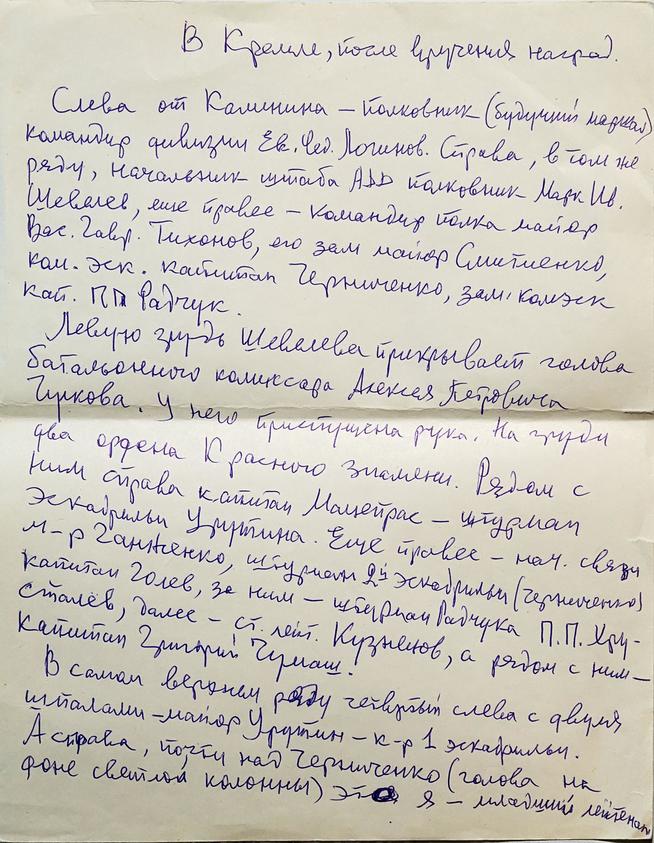 В Кремле, после вручения наград.
Слева от Калинина – полковник (будущий маршал)
командир дивизии Ев. Фед. Логинов. Справа, в том же
ряду, начальник штаба АДД полковник Марк Ив.
Шевелев, еще правее – командир полка майор
Вас. Гавр. Тихонов, его зам майор Смитиенко,
ком. эск. капитан Черниченко, зам. комэск
кап. ПП Радчук.
Левую грудь Шевелева прикрывает голова
батальонного комиссара Алексея Петровича
Чулкова. У него приспущена рука. На груди
два ордена Красного знамени. Рядом с
ним справа капитан Мацепрас – штурман
эскадрильи Урутина. Еще правее – нач. связи
м-р Ганженко, штурман 2й эскадрильи (Черниченко)
капитан Голев, за ним – штурман Радчука П.П. Хру-
сталев, далее – ст. лейт. Кузнецов, а рядом с ним –
капитан Григорий Чумаш.
В самом верхнем ряду четвертый слева с двумя
шпалами – майор Урутин – к-р 1 эскадрильи.
А справа, почти над Черниченко (голова на
фоне светлой колонны) это я – младший лейтенан